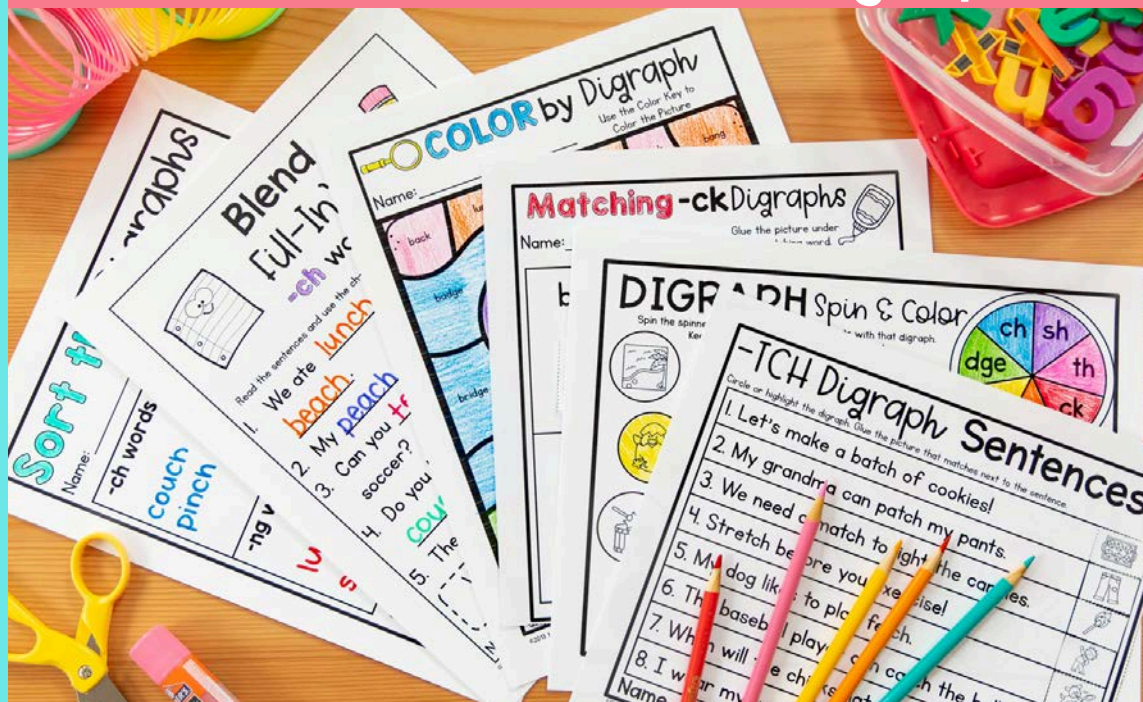 Sort
Name:
-ch words
couch
pinch
-ng
Blend
Fill-In
-ch
Read the sentences and use the ch-
1. We ate lunch
beach.
2. My peach
3. Can you
soccer?
4. Do you
5. The
COLOR by Digraph
Use the Color Key to
Color the Picture
Name:
back
bang
badge
bridge
Matching -ck Digraphs
Glue the picture under
word
Name:
DIGRAPH Spin & Color
Spin the
with that digraph.
ch
sh
dge
th
ck
-TCH Digraph Sentences
Circle or highlight the digraph. Glue the picture that matches next to the sentence.
1. Let's make a batch of cookies!
2. My grandma can patch my pants.
3. We need a match to light the candles.
4. Stretch before you exercise!
5. My dog likes to play fetch.
6. The baseball player can catch the
7. When will the chicks
8. I wear my
Name